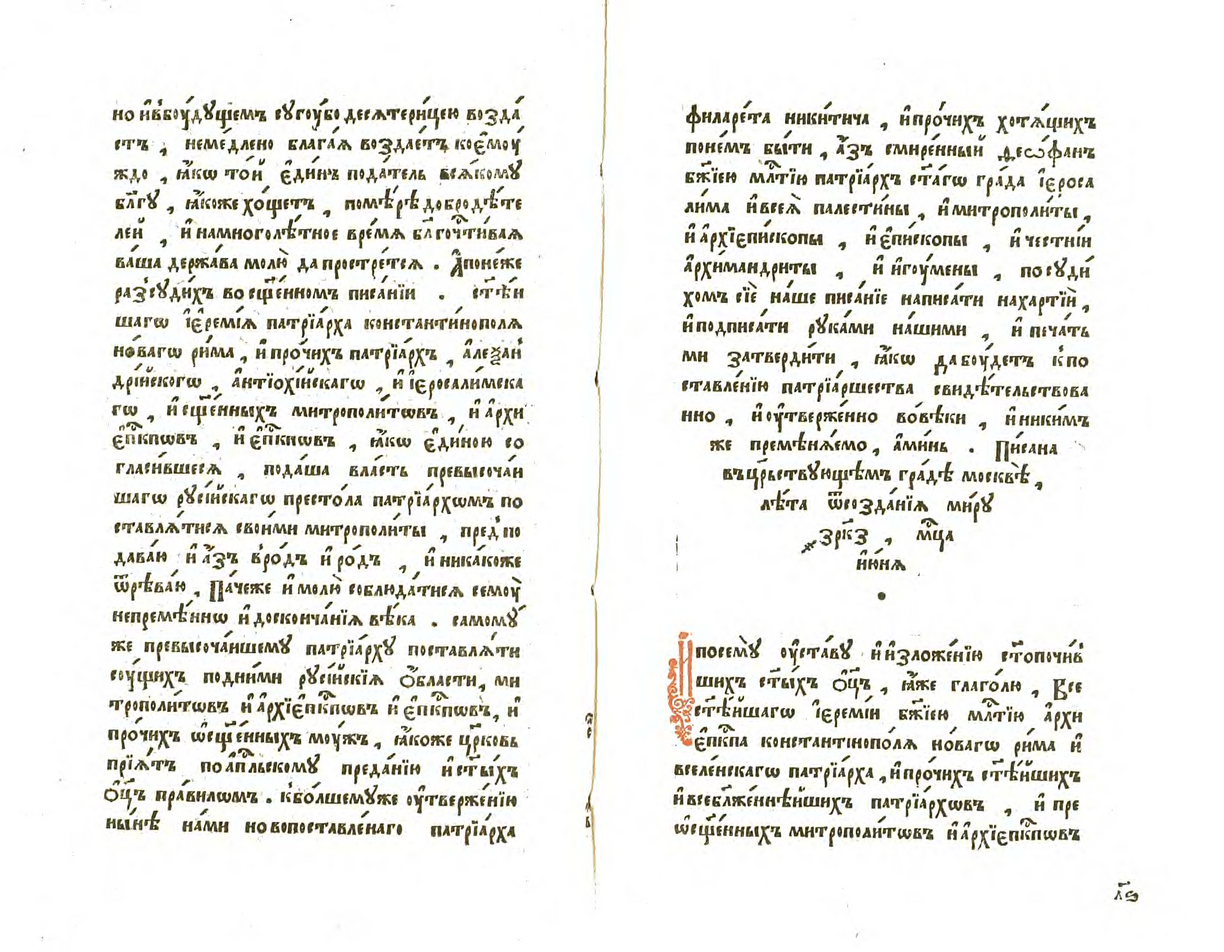 но и҆вбоу́дꙋщемъ сꙋгоу́бо десѧтери́цею возда́
стъ , неме́длено блага́ѧ воздае́тъ коемоу̀
ждо , ꙗ҆́кѡ то́й є҆ди́нъ пода́тель всѧ́комꙋ
бл҃гꙋ , ꙗ҆́коже хо́щетъ , помѣ́рѣ добродѣ́те
лей , и҆ намноголѣ́тное вре́мѧ бл҃гочти́ваѧ
ва́ша держа́ва молю̀ да простре́тсѧ . А҆поне́же
разсꙋди́хъ во сщ҃е́нномъ писа́нїи . ст҃ѣ́и
шагѡ і҆еремі́ѧ патрїа́рха константино́полѧ
но́вагѡ ри́ма , и҆про́чихъ патрїа́рхъ , а҆леѯан
дрі́йскогѡ , а҆нтїохі́йскагѡ , и҆ і҆еросали́мска
гѡ , и҆ сщ҃е́нныхъ митрополи́тѡвъ , и҆ а҆рхи
є҆пⷭ҇кпѡвъ , и҆ є҆пⷭ҇кпѡвъ , ꙗ҆́кѡ є҆ди́ною со
гласи́вшесѧ , пода́ша вла́сть превысоча́и
шагѡ рꙋсі́йскагѡ престо́ла патрїа́рхѡмъ по
ставлѧ́тисѧ свои́ми митрополи́ты , пред̾по
дава́ю и҆ а҆́зъ в̾ро́дъ и҆ ро́дъ , и҆ ника́коже
ѿрѣва́ю , Па́чеже и҆ молю̀ соблюда́тисѧ семоу̀
непремѣ́ннѡ и҆ доскончанїѧ вѣ́ка . самомꙋ́
же превысоча́ишемꙋ патрїа́рхꙋ поставлѧ́ти
соу́щихъ подни́ми рꙋсі́йскїѧ ѻ҆́бласти, ми
трополи́тѡвъ и҆ а҆рхїєпⷭ҇кпѡвъ и҆ є҆пⷭ҇кпѡвъ, и҆
про́чихъ ѡ҆сщ҃е́нныхъ моу́жъ , ꙗ҆́коже цр҃ковь
прїѧ́тъ по а҆пⷭ҇льскомꙋ преда́нїю и҆ ст҃ы́хъ
ѻ҆ц҃ъ пра́вилѡмъ . к̾бо́лшемꙋже оу҆твержє́нїю
ны́нѣ на́ми новопоставле́наго патрїа́рха
филаре́та ники́тича , и҆про́чихъ хотѧ́щихъ
поне́мъ бы́ти , а҆́зъ смире́нный ѳеѡфанъ
бж҃їею млⷭ҇тїю патрїа́рхъ ст҃а́гѡ гра́да і҆ероса
ли́ма и҆всеѧ̀ палести́ны , и҆ митрополи́ты ,
и҆ а҆рхїепи́скопы , и҆ є҆пи́скопы , и҆ честні́и
а҆рхимандри́ты , и҆ и҆гоу́мены , посꙋди́
хомъ сїѐ на́ше писа́нїе написа́ти нахарті́и ,
и҆подписа́ти рꙋка́ми на́шими , и҆ печа́ть
ми затверди́ти , ꙗ҆́кѡ дабоу́детъ к̾по
ставле́нїю патрїа́ршества свидѣ́тельствова
нно , и҆ оу҆тверже́нно во́вѣки , и҆ ники́мъ
же премѣнѧ́емо , а҆ми́нь . Пи́сана
въцр҃ьствꙋ́ющемъ гра́дѣ москвѣ̀ ,
лѣ́та ѿсозда́нїѧ ми́рꙋ
҂зркз , мⷭ҇ца
и҆ю́нѧ
И҆ посе́мꙋ оу҆ста́вꙋ и҆ и҆зложе́нїю ст҃опочи́в
шихъ ст҃ы́хъ ѻ҆ц҃ъ , ꙗ҆́же глаго́лю , Все
ст҃ѣ́йшагѡ і҆еремі́и бж҃їею млⷭ҇тїю а҆рхи
є҆пⷭ҇кпа константїнопо́лѧ но́вагѡ ри́ма и҆
вселе́нскагѡ патрїа́рха , и҆про́чихъ ст҃ѣ́йшихъ
и҆всебл҃же́ннѣйшихъ патрїа́рхѡвъ , и҆ пре
ѡ҆сщ҃е́нныхъ митрополи́тѡвъ и҆ а҆рхїєпⷭ҇кпѡвъ
л҃ѕ